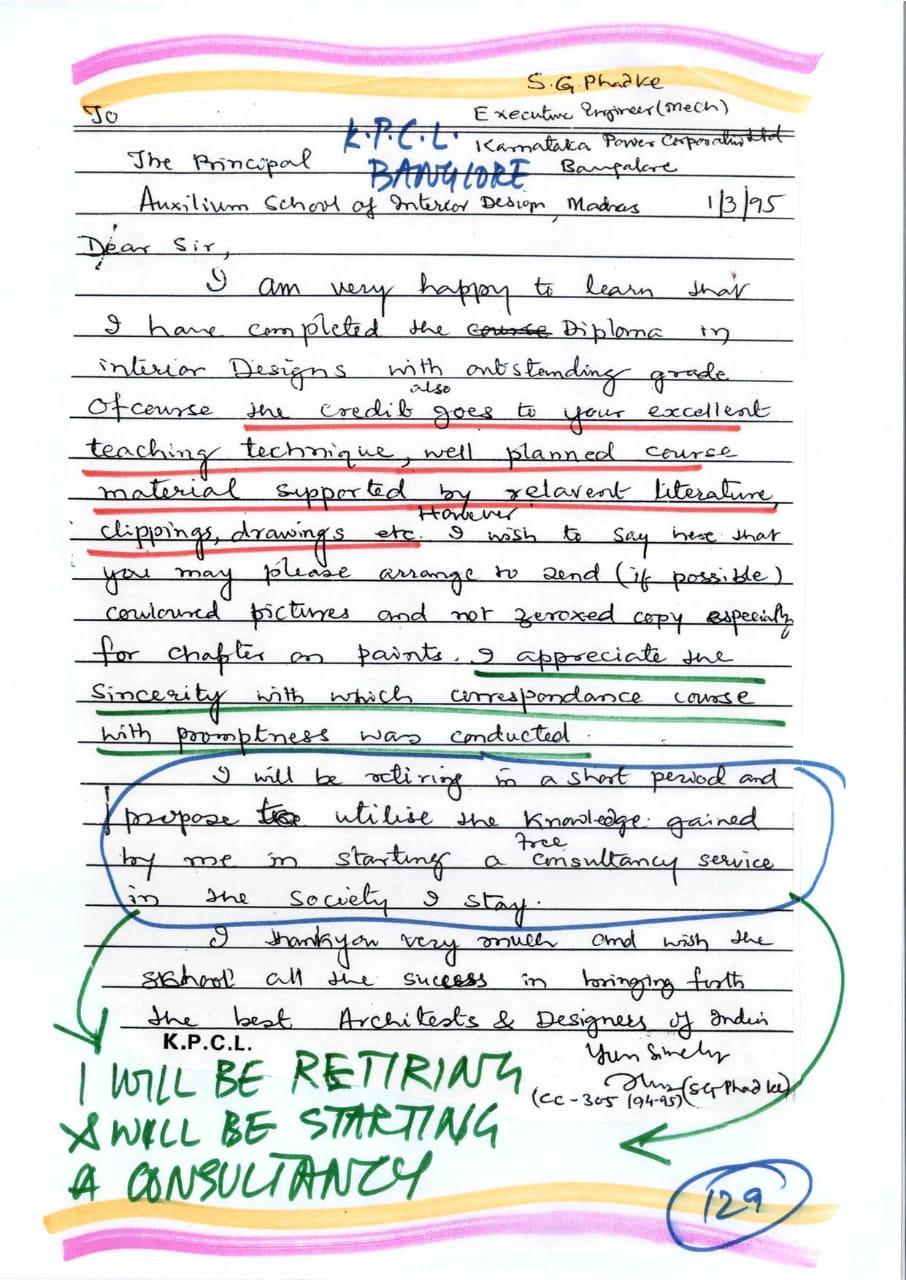 S.G.Phadke
To
Executive Engineer (Mech)
K.P.C.L. Karnataka Power Corporation Ltd
The Principal
BANGLORE Bangalore
Auxilium School of Interior Design, Madras 1/3/95
Dear Sir,
I am very happy to learn that
I have completed the course Diploma in
interior Designs with outstanding grade
Ofcourse the credit also goes to your excellent
teaching technique, well planned course
material supported by relavent literature,
clippings, drawings etc. However I wish to say here that
you may please arrange to send (if possible)
couloured pictures and not zeroxed copy especially
for chapter on paints. I appreciate the
sincerity with which correspondance course
with promptness was conducted.
I will be retiring in a short period and
propose to utilise the knowledge gained
by me in starting a free consultancy service
in the society I stay.
I thankyou very much and wish the
school all the success in bringing forth
the best Architests & Designers of India
K.P.C.L.
Yours Sincerely
(SG Phadke)
(CC-305 (94-95)
I WILL BE RETIRING
& WILL BE STARTING
A CONSULTANCY
129